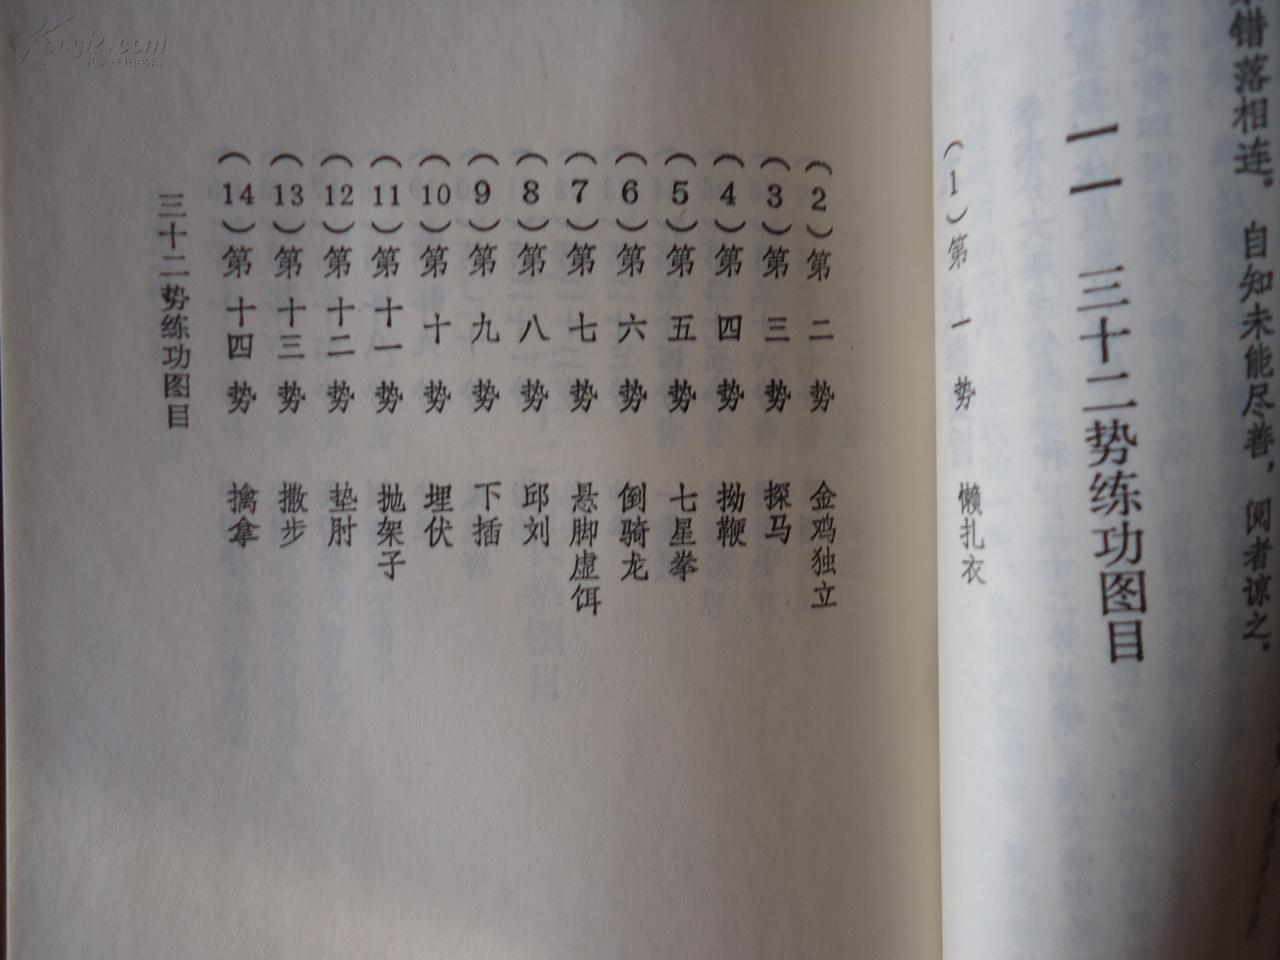 错落相连。自知未能尽善，阅者谅之。
一一 三十二势练功图目
（1）第一势 懒扎衣
（2）第二势 金鸡独立
（3）第三势 探马
（4）第四势 拗鞭
（5）第五势 七星拳
（6）第六势 倒骑龙
（7）第七势 悬脚虚饵
（8）第八势 邱刘
（9）第九势 下插
（10）第十势 埋伏
（11）第十一势 抛架子
（12）第十二势 垫肘
（13）第十三势 撒步
（14）第十四势 擒拿
三十二势练功图目